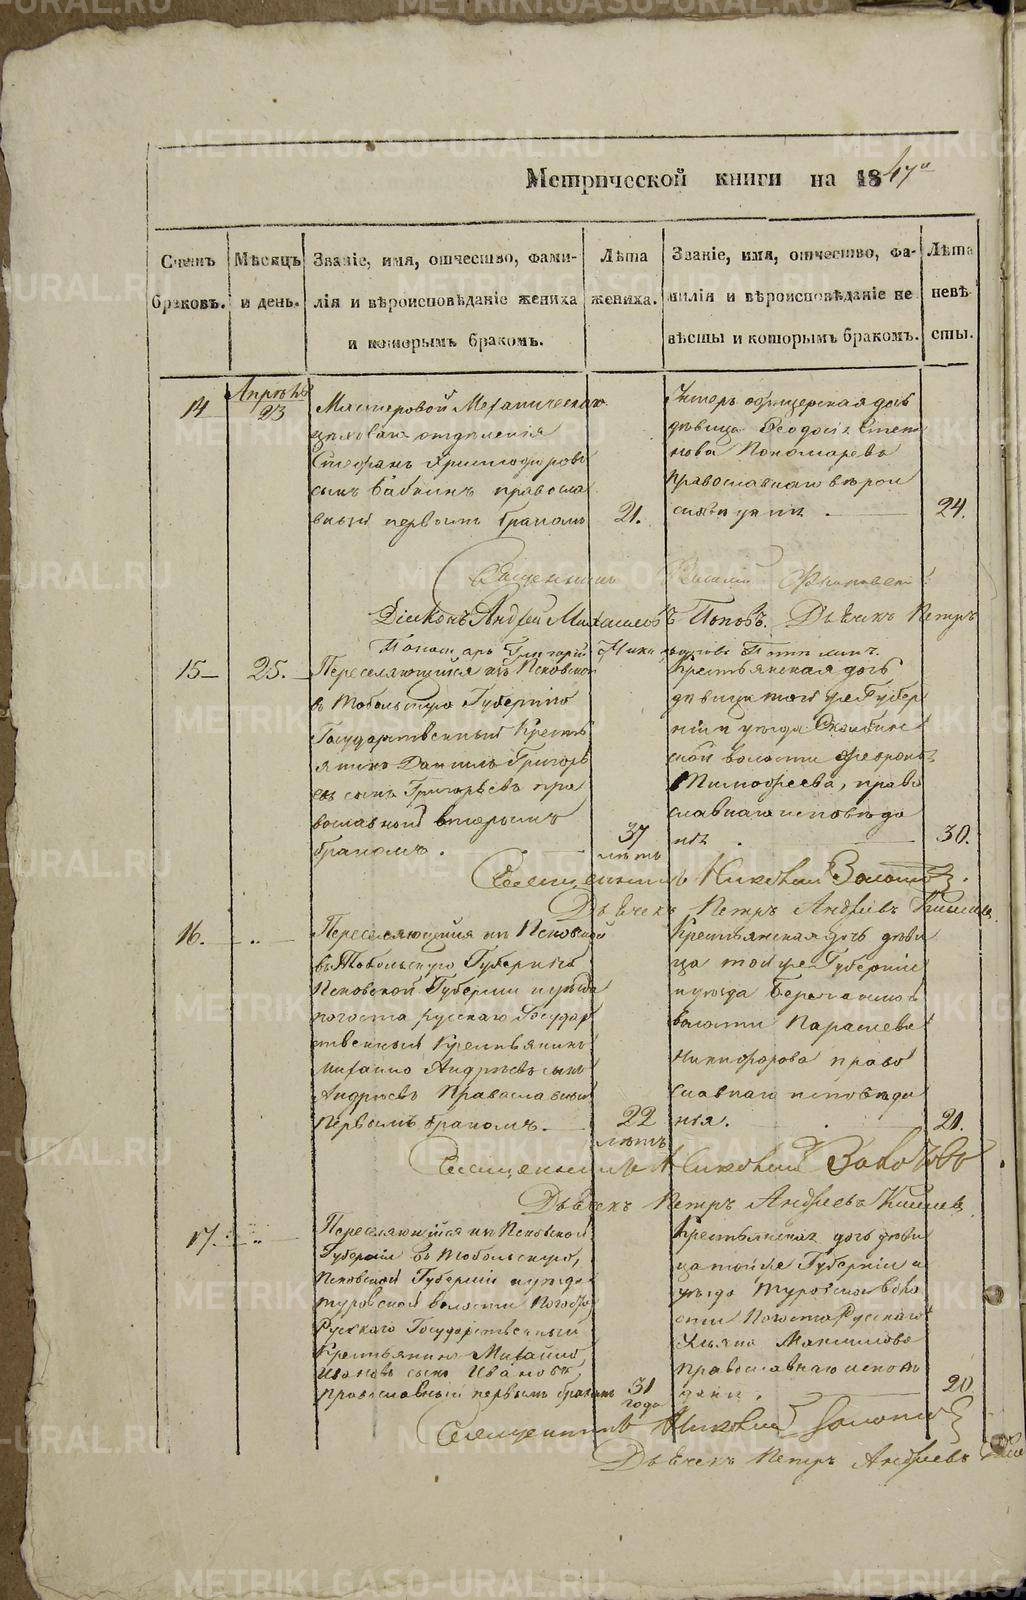 METRIKI.GASO-URAL.RU
Метрической книги на 1847го
Счетъ браковъ.
Мѣсяцъ и день.
Званіе, имя, отчество, фами-
лія и вѣроисповѣданіе жениха
и которымъ бракомъ.
Лѣта жениха.
Званіе, имя, отчество, фа-
милія и вѣроисповѣданіе не
вѣсты и которымъ бракомъ.
Лѣта невѣ
сты.
14
Апрѣль
23
Мастеровой Механическаго
цеховаго отдѣленія
Стефанъ Христофоровъ
сынъ Бабкинъ правосла
вный первымъ бракомъ
21.
Унтеръ офицерская дочь
дѣвица Ѳеодосія Степа
нова Пономарева
православнаго вѣрои
24.
Священникъ Василій
Діаконъ Андрей Михайловъ Поповъ. Дьячекъ Петръ
Пономарь Григорій
15
25.
Переселяющійся изъ Псковской
въ Тобольскую Губернію
Государственный Кресть
янинъ Даніилъ Григорь
евъ сынъ Григорьевъ пра
вославной вторымъ
бракомъ.
37
лѣтъ
Крестьянская дочь
дѣвица той же Губер
ніи и уѣзда
ской волости
Тимофеева, право
славнаго исповѣда
нія
30.
Священникъ Николай
Дьячекъ Петръ Андреевъ
16.
Переселяющійся изъ Псковской
въ Тобольскую Губернію
Псковской Губерніи и уѣзда
погоста русскаго Государ
ственный Крестьянинъ
Михайло Андреевъ сынъ
Андреевъ Православный
первымъ бракомъ.
22
лѣтъ
Крестьянская дочь дѣви
ца той же Губерніи
и уѣзда
волости Параскева
Никифорова право
славнаго исповѣда
нія.
21.
Священникъ Николай
Дьячекъ Петръ Андреевъ
17.
Переселяющійся изъ Псковской
Губерніи въ Тобольскую,
Псковской Губерніи и уѣзда
туровской волости Погоста
Рускаго Государственный
Крестьянинъ Михайло
Ивановъ сынъ Ивановъ,
православный первымъ бракомъ
31
года
Крестьянская дочь дѣви
ца той же Губерніи и
уѣзда Туровской воло
сти Погоста Русскаго
Ульяна Максимова
православнаго исповѣ
данія.
20
Священникъ Николай
Дьячекъ Петръ Андреевъ